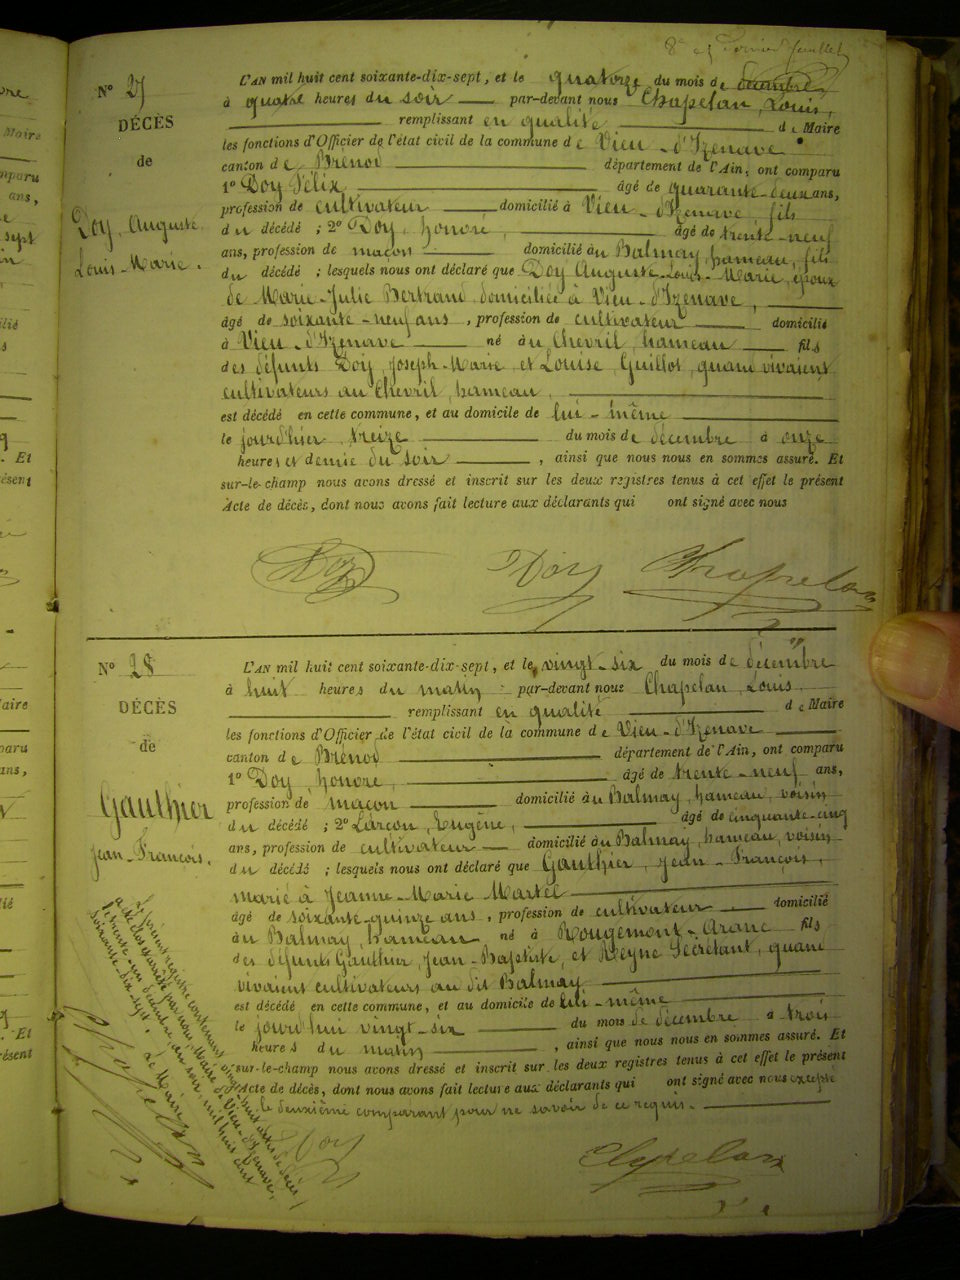 8e et dernier feuillet
N° 27
DÉCÈS
de
Doy, Auguste
Louis-Marie.
L'AN mil huit cent soixante-dix-sept, et le quatorze du mois de décembre
à quatre heures du soir par-devant nous Chapelan, Louis,
remplissant en qualité de Maire
les fonctions d'Officier de l'état civil de la commune de Vieu-d'Izenave
canton de Brénod département de l'Ain, ont comparu
1° Doy Félix âgé de quarante-deux ans,
profession de cultivateur domicilié à Vieu-d'Izenave, fils
du décédé ; 2° Doy, honoré, âgé de trente-neuf
ans, profession de maçon domicilié au Balmay, hameau, fils
du décédé ; lesquels nous ont déclaré que Doy Auguste-Louis-Marie, époux
de Marie-Julie Bertrand domiciliée à Vieu-d'Izenave,
âgé de soixante-neuf ans, profession de cultivateur domicilié
à Vieu-d'Izenave né au Chevril, hameau fils
des défunts Doy, Joseph-Marie et Louise Guillot, quand vivaient
cultivateurs au Chevril, hameau,
est décédé en cette commune, et au domicile de lui-même
le jourd'hier treize du mois de décembre à onze
heures et demie du soir, ainsi que nous nous en sommes assuré. Et
sur-le-champ nous avons dressé et inscrit sur les deux registres tenus à cet effet le présent
Acte de décès, dont nous avons fait lecture aux déclarants qui ont signé avec nous
Doy Doy Chapelan
N° 28
DÉCÈS
de
Gauthier
Jean-François.
L'AN mil huit cent soixante-dix-sept, et le vingt-six du mois de décembre
à huit heures du matin par-devant nous Chapelan, Louis,
remplissant en qualité de Maire
les fonctions d'Officier de l'état civil de la commune de Vieu-d'Izenave
canton de Brénod département de l'Ain, ont comparu
1° Doy, honoré, âgé de trente-neuf ans,
profession de maçon domicilié au Balmay, hameau, voisin
du décédé ; 2° Larçon, Eugène, âgé de cinquante-cinq
ans, profession de cultivateur domicilié au Balmay, hameau, voisin
du décédé ; lesquels nous ont déclaré que Gauthier, Jean-François,
marié à Jeanne-Marie Martel
âgé de soixante-quinze ans, profession de cultivateur domicilié
au Balmay, hameau né à Rougemont-Aranc fils
des défunts Gauthier, Jean-Baptiste, et Reyne Secrétant, quand
vivaient cultivateurs au dit Balmay
est décédé en cette commune, et au domicile de lui-même
le jourd'hui vingt-six du mois de décembre à trois
heures du matin, ainsi que nous nous en sommes assuré. Et
sur-le-champ nous avons dressé et inscrit sur les deux registres tenus à cet effet le présent
Acte de décès, dont nous avons fait lecture aux déclarants qui ont signé avec nous excepté
le deuxième comparant pour ne savoir de ce requis.
Doy Chapelan
Le présent registre contenant vingt-huit actes de décès
a été clos et arrêté par nous, Maire de Vieu-d'Izenave,
le trente-un décembre, au soir, mil huit cent
soixante-dix-sept.
Le Maire
Chapelan